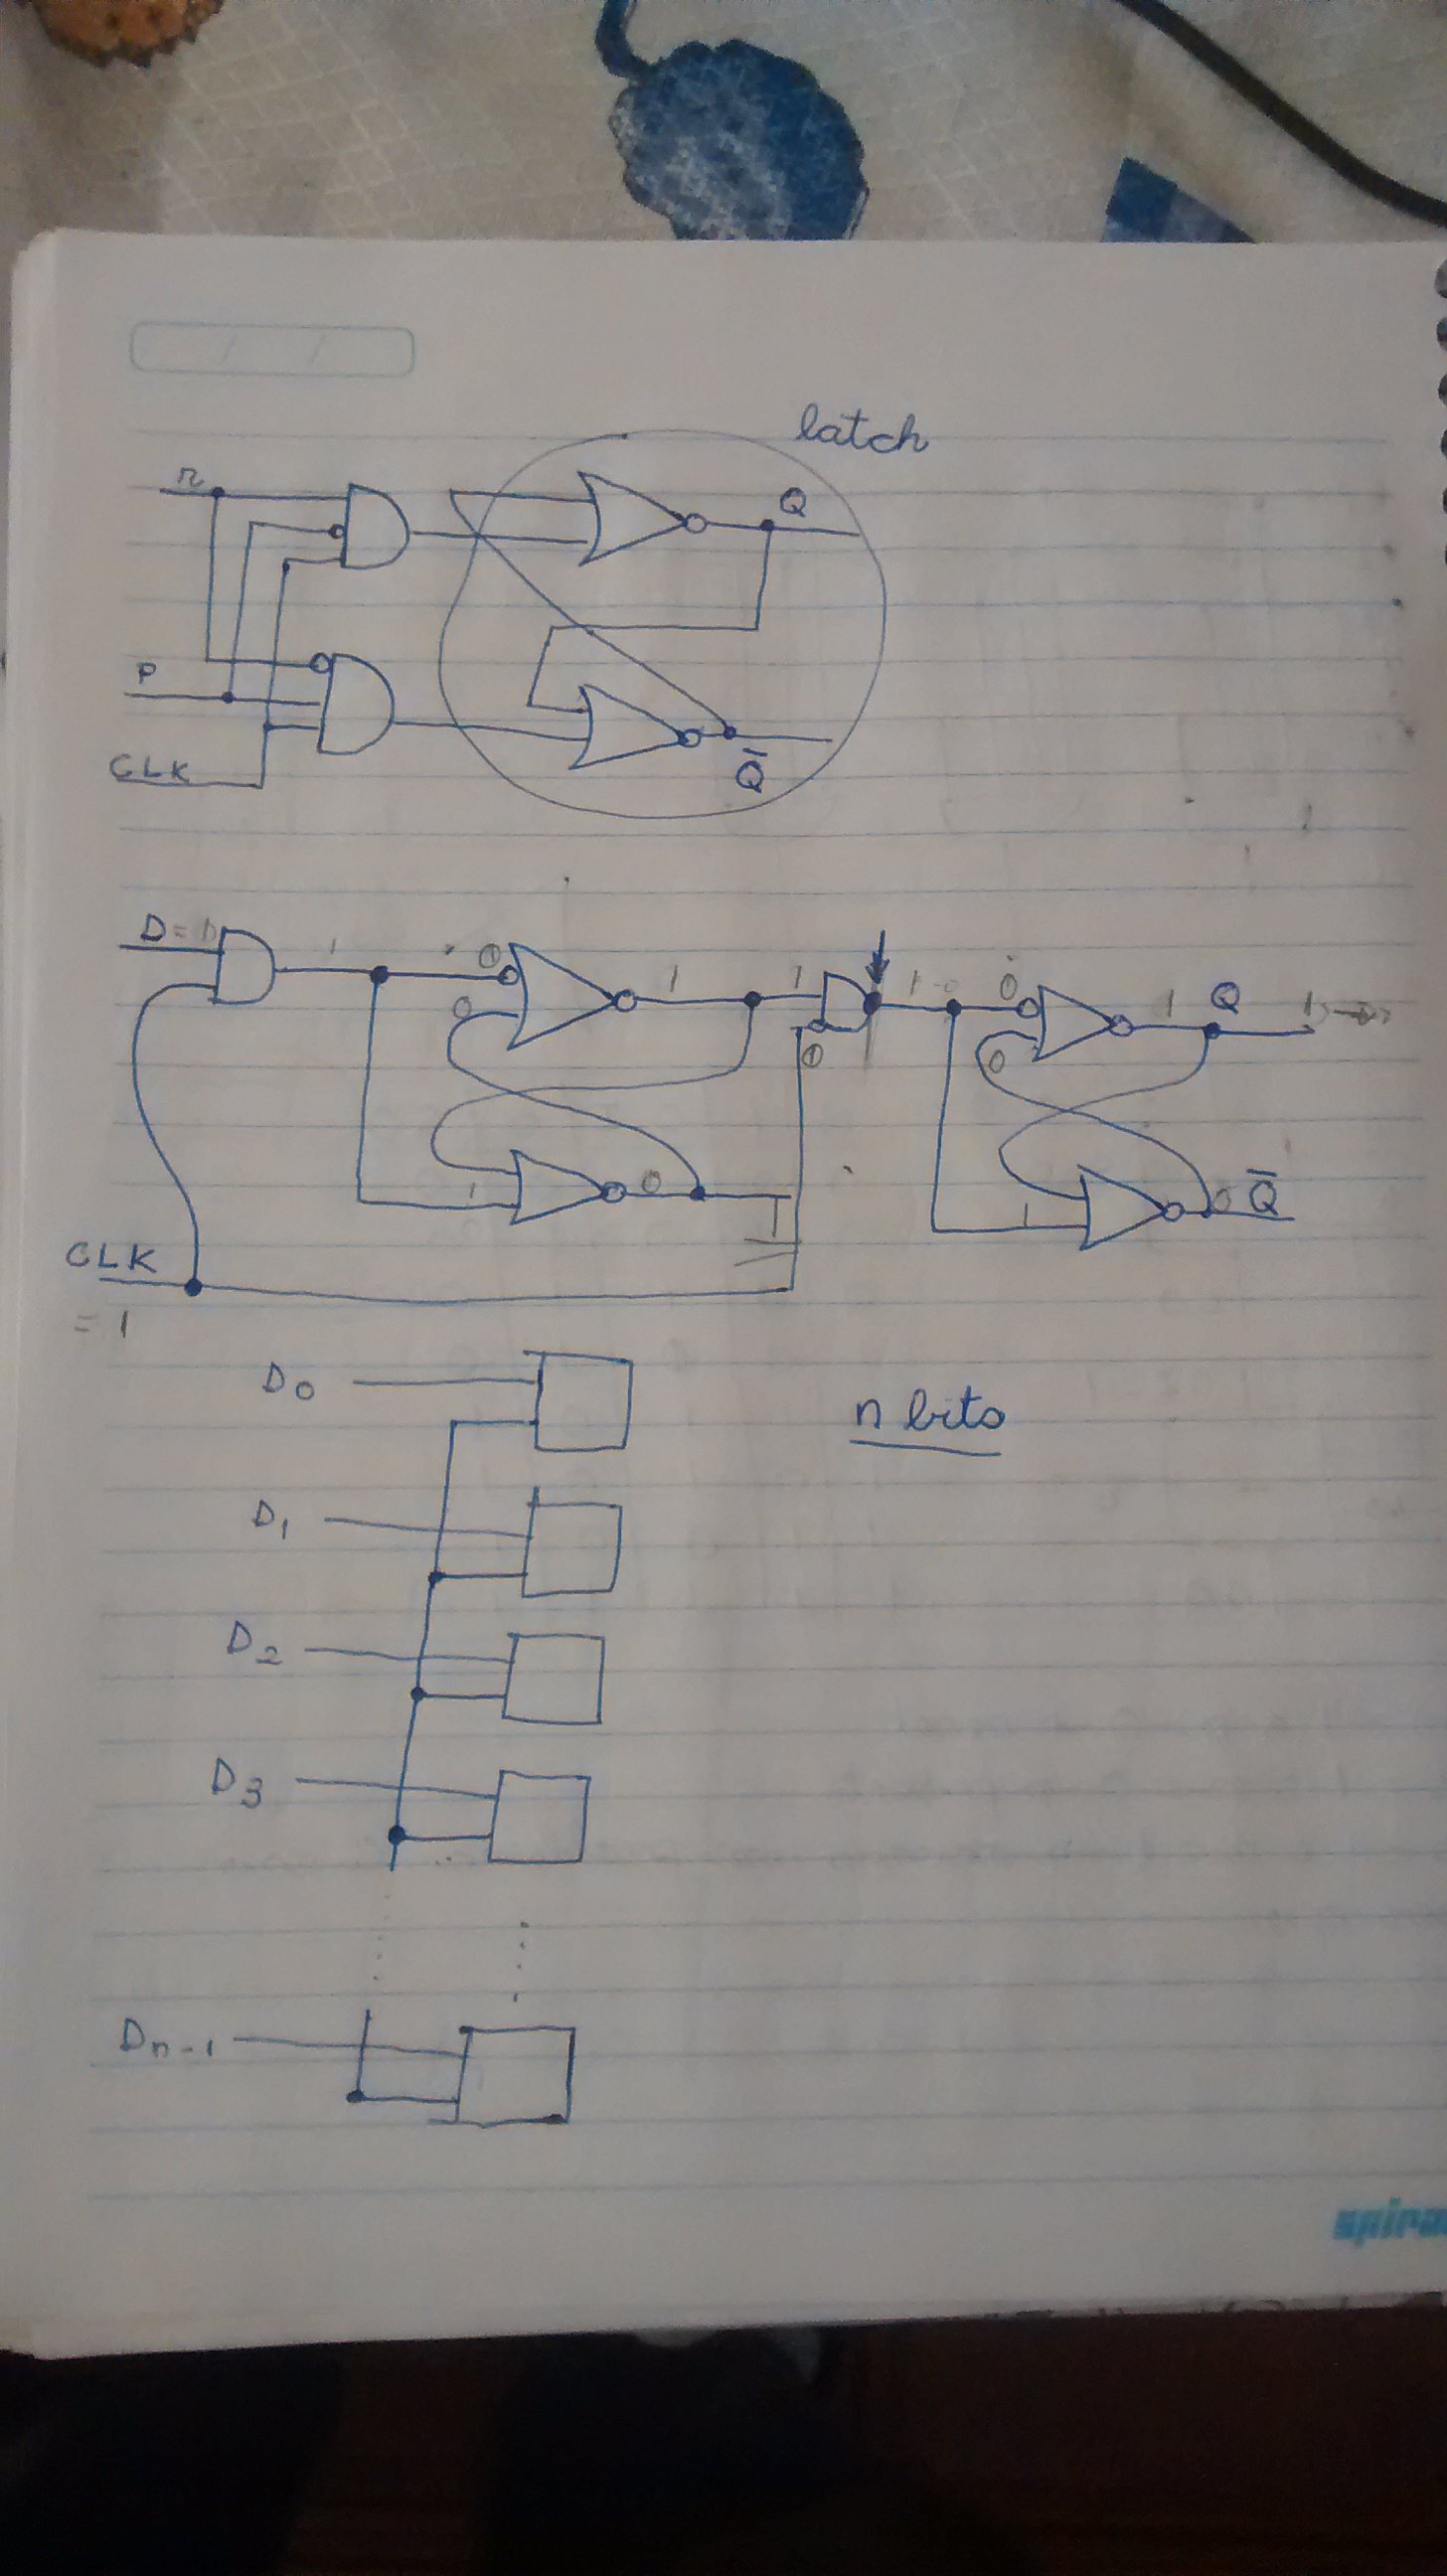 latch
r
Q
P
CLK
Q̄
D = 1
1
0
1
1
1-0
0
1
Q
1
0
0
0
1
0
1
0
Q̄
CLK
= 1
D0
n bits
D1
D2
D3
Dn-1